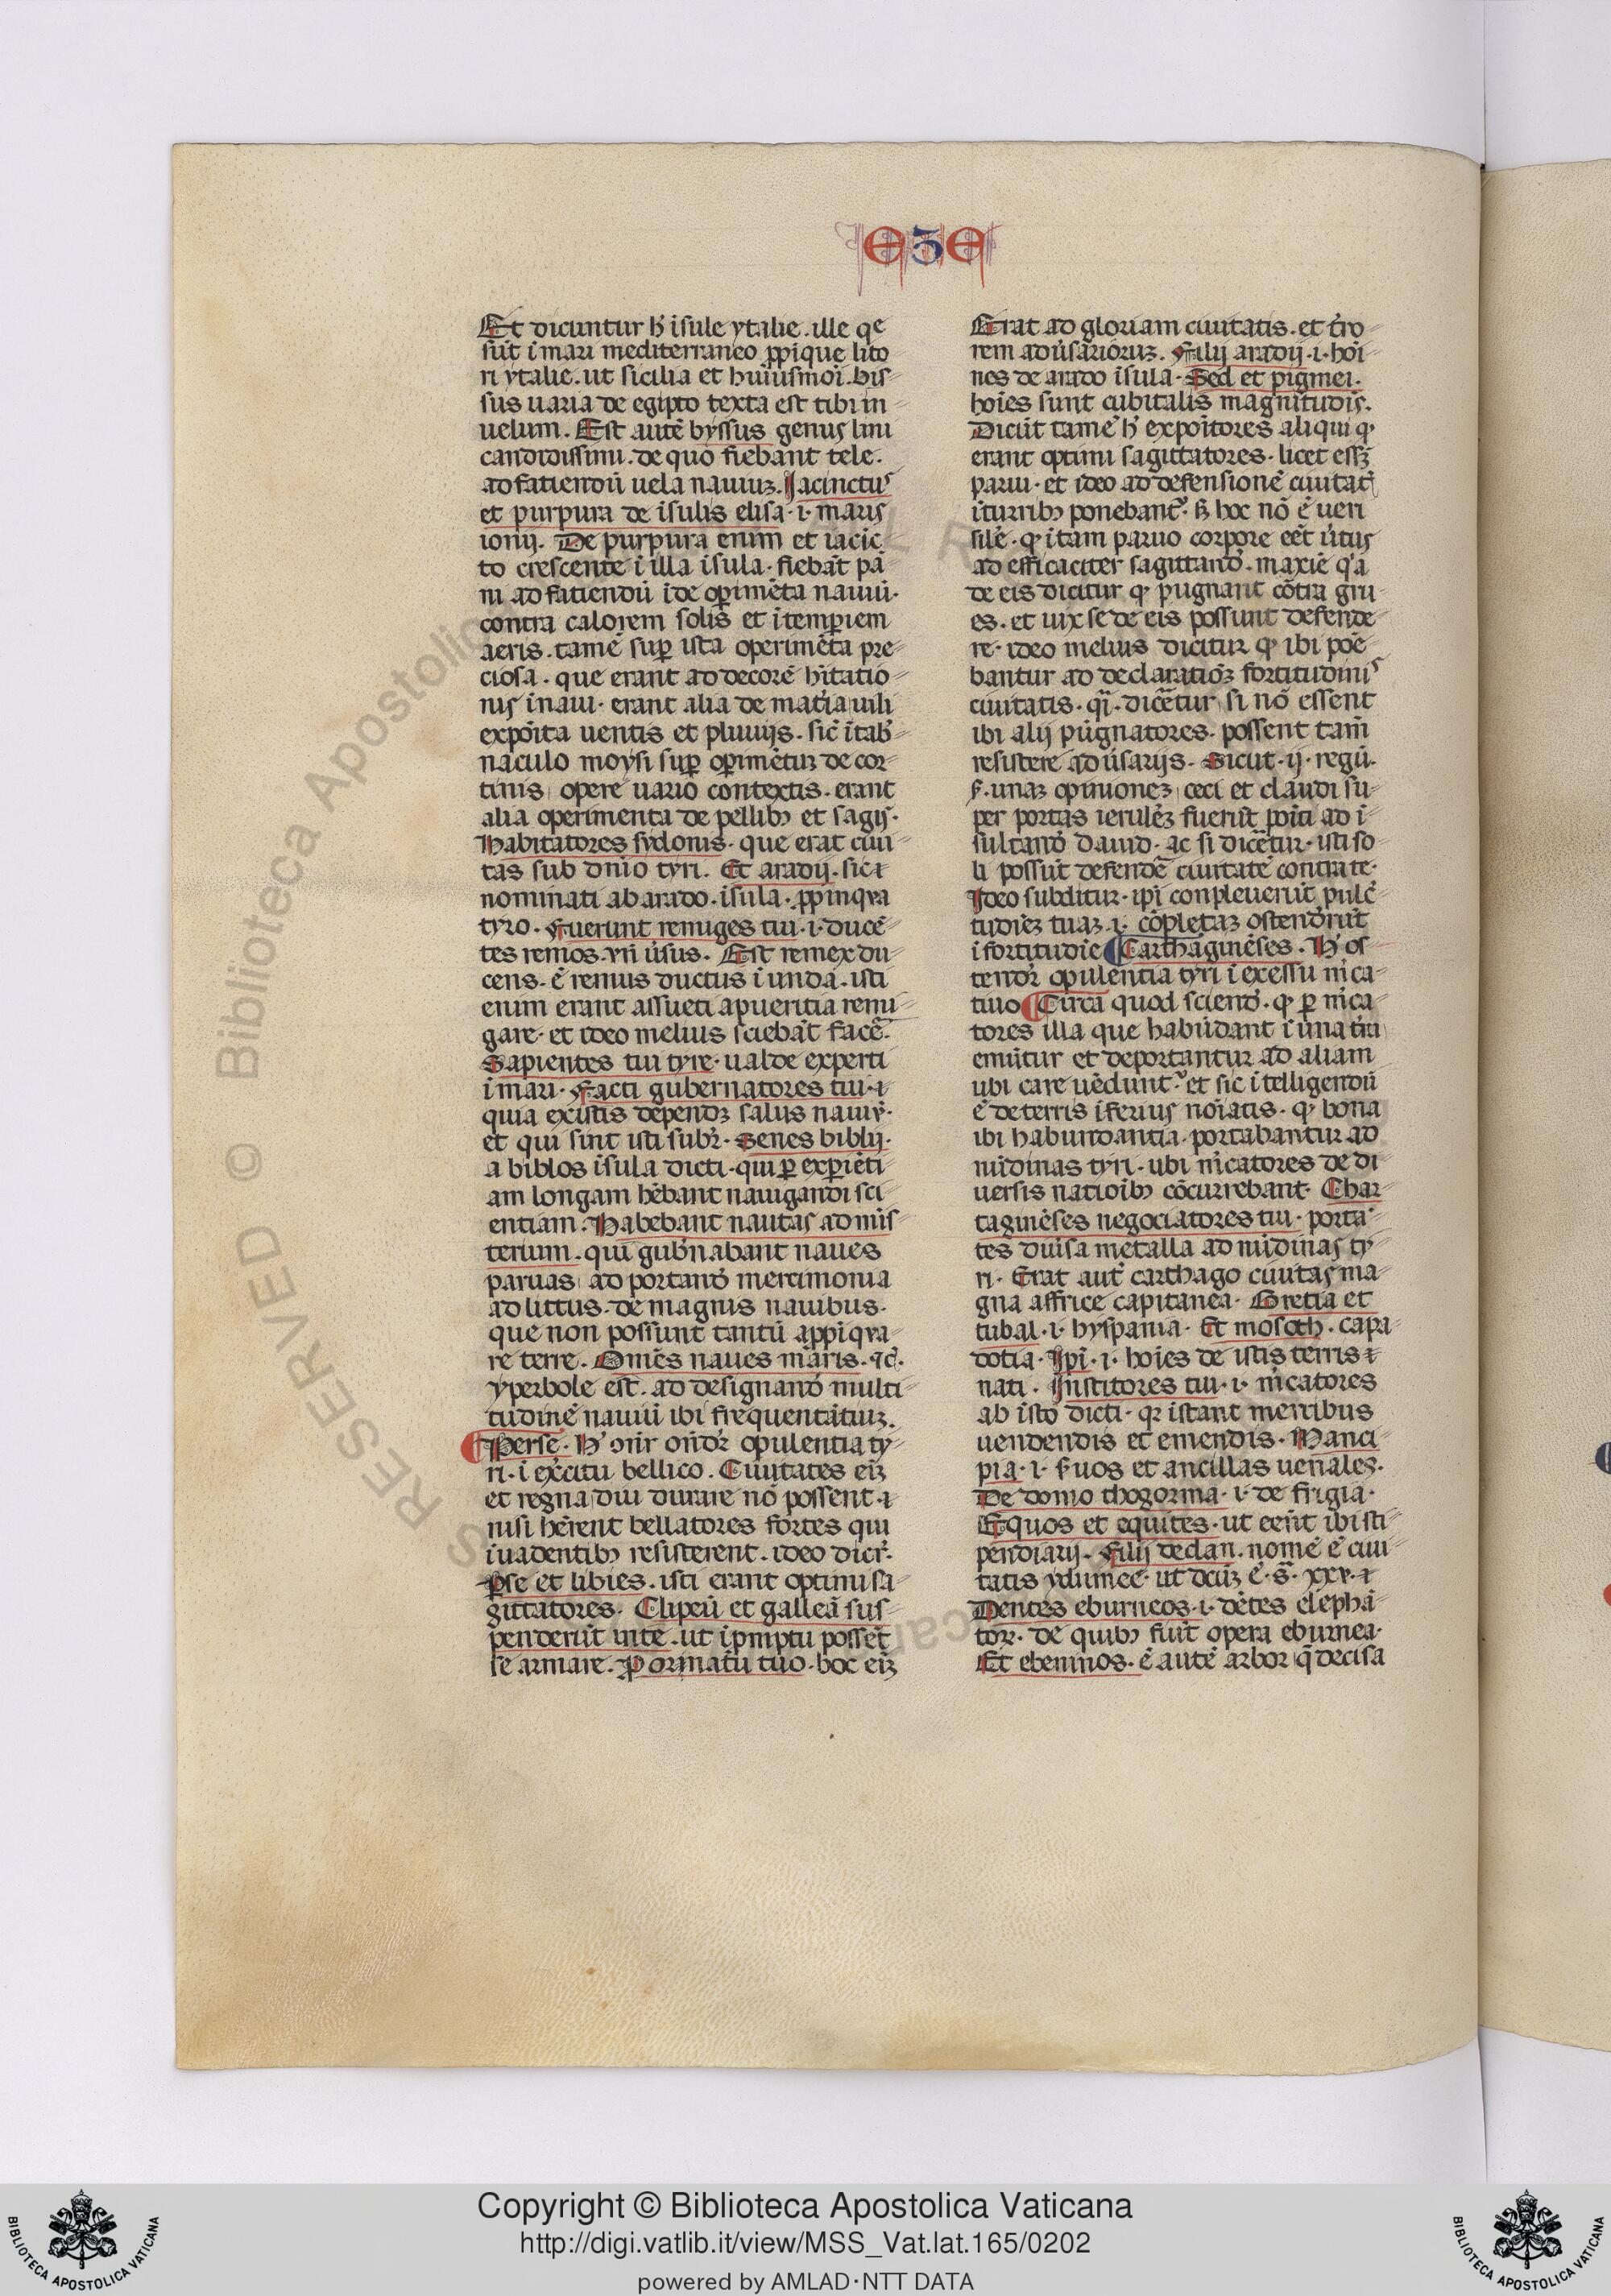 EZE
Et dicuntur h̄ ĩsule ytalie. ille qe
sũt ĩ mari mediterraneo ꝓpique lito
ri ytalie. ut sicilia et huiusmoi. bis
sus uaria de egipto texta est tibi in
uelum. Est autẽ byssus genus lini
candidissimi. de quo fiebant tele.
ad fatiendũ uela nauiuꝫ. Jacinctus
et purpura de ĩsulis elisa. i. maris
ionij. De purpura enim et iacic
to crescente ĩ illa ĩsula. fiebãt pã
ni ad fatiendũ ĩde oꝑimẽta nauiũ.
contra calorem solis et ĩtemꝑiem
aeris. tamẽ suꝑ ista operimẽta pre
ciosa. que erant ad decorẽ hĩtatio
nis in aui. erant alia de mat̃ia uili
expõita uentis et pluuijs. sic̃ ĩ tab̃
naculo moysi suꝑ oꝑimẽtuꝫ de cor
tinis opere uario contextis. erant
alia operimenta de pellibꝫ et sagis.
Habitatores sydonis. que erat ciui
tas sub dñio tyri. Et aradij. sic ⁊
nominati ab arado. ĩsula. ꝓpinqva
tyro. Fuerunt remiges tui. i. ducẽ
tes remos. vñ ũsus. Est remex du
cens. ẽ remus ductus ĩ unda. isti
enim erant assueti a pueritia remi
gare. et ideo melius sciebãt facẽ.
Sapientes tui tyre. ualde experti
ĩ mari. Facti gubernatores tui. ⁊
quia ex istis dependꝫ salus nauiꝝ.
et qui sint isti subꝝ. Senes biblij.
a biblos ĩsula dicti. qui ꝑ exꝑiẽti
am longam hẽbant nauigandi sci
entiam. Habebant nautas ad mĩs
terium. qui gub̃nabant naues
paruas ad portand̃ mercimonia
ad littus. de magnis nauibus.
que non possunt tantũ appiqva
re terre. Omẽs naues maris. ⁊c̃.
yperbole est. ad designand̃ multi
tudinẽ nauiũ ibi frequentãtiuꝫ.
Perse. H̃ oñr oñdꝝ opulentia ty
ri. ĩ exẽcitu bellico. Ciuitates eiꝫ
et regna diu durare nõ possent ⁊
nisi hẽrent bellatores fortes qui
ĩuadentibꝫ resisterent. ideo dicꝝ.
ꝑse et libies. isti erant optimi sa
gittatores. Clipeũ et galleã sus
penderũt in te. ut ĩ pmptu possẽt
se armare. ꝓ ornatu tuo. hoc eiꝫ
Erat ad gloriam ciuitatis. et t̃ro
rem adũsarioruꝫ. Filij aradij. i. hõi
nes de arado ĩsula. Sed et pigmei.
hoĩes sunt cubitalis magnitudis.
Dicũt tamẽ h̃ expoĩtores aliqui ꝙ
erant optimi sagittatores. licet essꝫ
parui. et ideo ad defensionẽ ciuitat̃
ĩ turribꝫ ponebant̃. sꝫ hoc nõ ẽ ueri
sile. ꝙ ĩ tam paruo corpore eẽt ũtus
ad efficaciter sagittand̃. maxie q̃a
de eis dicitur ꝙ pugnant cõtra gru
es. et uix se de eis possunt defende
re. ideo melius dicitur ꝙ ibi poẽ
bantur ad declaratioꝫ fortitudinis
ciuitatis. qĩ. dic̃etur si nõ essent
ibi alij pugnatores. possent tam̃
resistere adũsarijs. Sicut. ij. regũ.
unaꝫ opinioneꝫ ceci et claudi su
per portas ierulẽꝫ fuerũt poĩti ad ĩ
sultand̃ dauid. ac si dic̃etur. isti so
li possũt defendẽ ciuitatẽ contra te.
Ideo subditur. ipĩ conpleuerũt pulc̃
tudieꝫ tuaꝫ. i. cõpletaꝫ ostend̃rũt
ĩ fortitudĩe Carthaginẽses. H̃ os
tendꝝ opulentia tyri ĩ excessu m̃ca
tiuo Circa quod sciend̃. ꝙ ꝑ m̃ca
tores illa que habũdant ĩ una t̃ra
emũtur et deportantur ad aliam
ubi care uẽdunt̃. et sic ĩtelligendũ
ẽ de terris ĩferius noĩatis. ꝙ bona
ibi habundantia. portabantur ad
nũdinas tyri. ubi m̃catores de di
uersis natioĩbꝫ cõcurrebant. Char
taginẽses negociatores tui. portã
tes diũsa metalla ad nũdinas ty
ri. Erat aut̃ carthago ciuitas ma
gna affrice capitanea. Gretia et
tubal. i. hyspania. Et mosoch. capa
dotia. Ipĩ. i. hoĩes de istis terris ⁊
nati. Institores tui. i. m̃catores
ab isto dicti. qꝛ ĩstant mercibus
uendendis et emendis. Manci
pia. i. s̃uos et ancillas uenales.
De domo thogorma. i. de frigia.
Equos et equites. ut eẽnt ibi sti
pendiarij. Filij dedan. nomẽ ẽ ciui
tatis ydumee. ut dcũꝫ ẽ. s̃. xxv. ⁊
Dentes eburneos. i. dẽtes elephã
toꝝ. de quibꝫ fiũt opera eburnea.
Et ebeninos. ẽ autẽ arbor q̃ decisa
© Biblioteca Apostolica
RESERVED
Copyright © Biblioteca Apostolica Vaticana
http://digi.vatlib.it/view/MSS_Vat.lat.165/0202
powered by AMLAD·NTT DATA
BIBLIOTECA APOSTOLICA VATICANA
BIBLIOTECA APOSTOLICA VATICANA